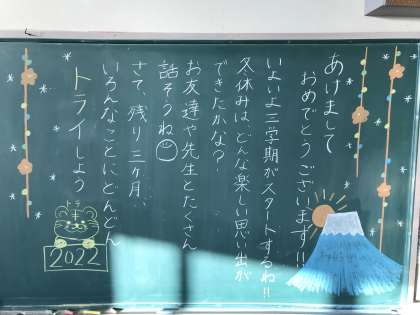 あけまして
おめでとうございます!!
いよいよ三学期がスタートするね!!
冬休みは、どんな楽しい思い出が
できたかな?
お友達や先生とたくさん
話そうね
さて、残り三ヶ月、
いろんなことにどんどん
トライしよう
トラ
2022